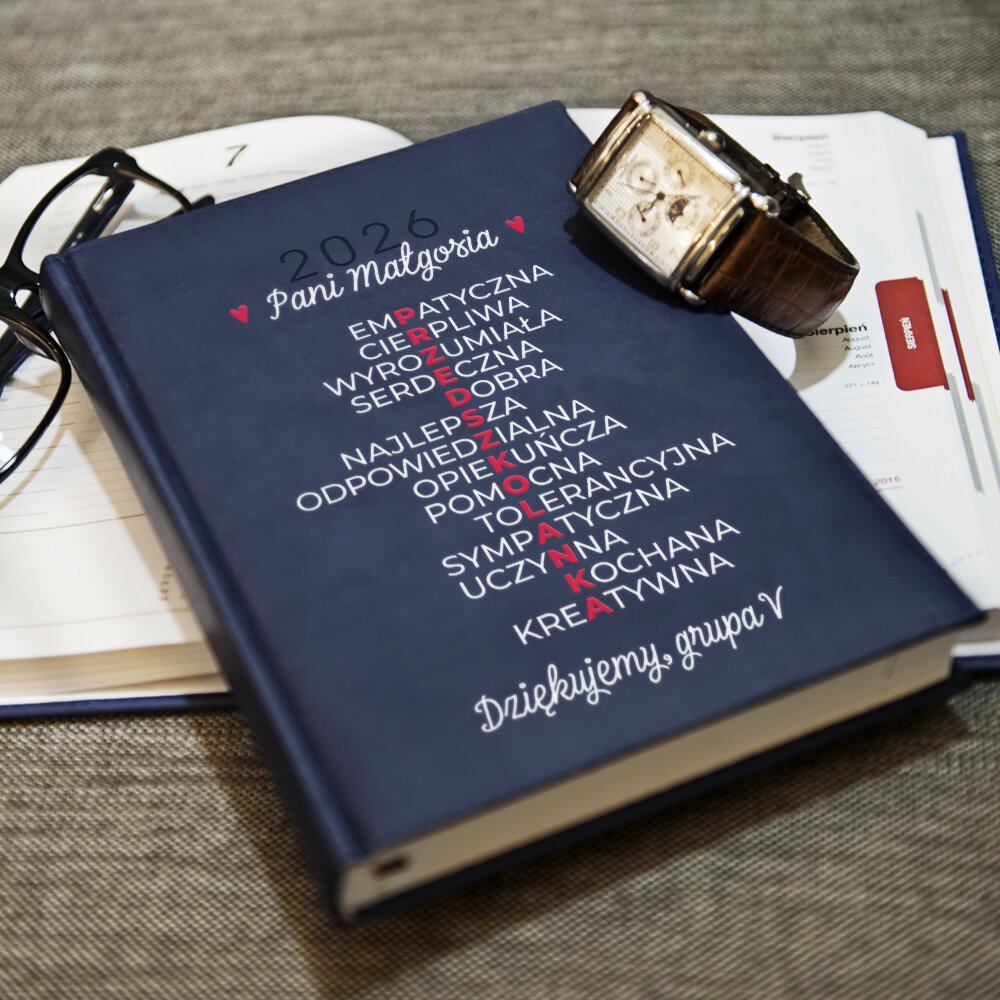 7
2026
Pani Małgosia
EMPATYCZNA
CIERPLIWA
WYROZUMIAŁA
SERDECZNA
DOBRA
NAJLEPSZA
ODPOWIEDZIALNA
OPIEKUŃCZA
POMOCNA
TOLERANCYJNA
SYMPATYCZNA
UCZYNNA
KOCHANA
KREATYWNA
Dziękujemy, grupa V
Sierpień
Sierpień
August
August
Août
Август
221 + 144
SIERPIEŃ
2015